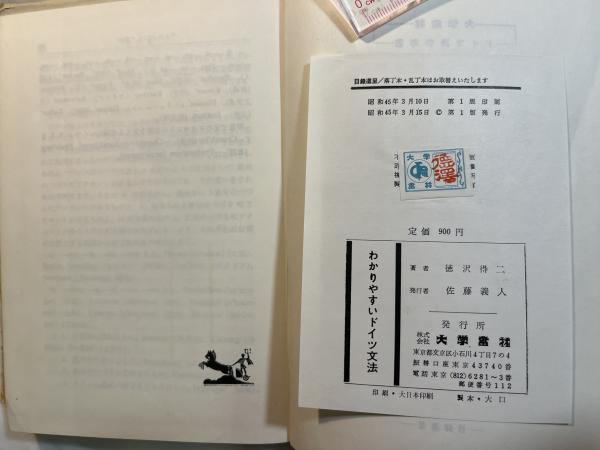 目録進呈／落丁本・乱丁本はお取替えいたします
昭和45年3月10日 第1版印刷
昭和45年3月15日 © 第1版発行
大学
書林
定価 900円
わかりやすいドイツ文法
著者 徳沢得二
発行者 佐藤義人
発行所
株式会社 大学書林
東京都文京区小石川4丁目7の4
振替口座東京43740番
電話東京(812)6281〜3番
郵便番号112
印刷・大日本印刷 製本・大口